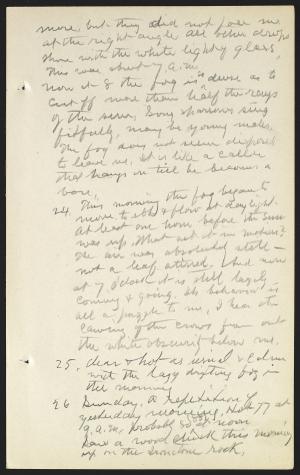 more but they did not face me
at the right angle. All other drops
shone with the white light of glass,
This was about 7 a.m.
Now it 8 the fog is so dense as to
cut off more than half the rays
of the sun. Song sparrows sing
fitfully, may be young males.
The fog does not seem disposed
to leave us. It is like a caller
that hangs on till he becomes a
bore.
24. This morning the fog began to
move, to ebb & flow at daylight.
At least one hour before the sun
was up. What set it in motion?
The air was absolutely still —
not a leaf stirred. And now
at 7 o'clock it is still lazily
coming & going. Its behavior is
all a puzzle to me, I hear the
cawing of the crows from out
the white obscurity below me.
25, clear & hot as usual & calm
with the lazy drifting fog in
the morning
26 Sunday, A repetition of
yesterday morning, Hot, 77 at
9 a.m. probably 90 at noon
Saw a wood chuck this morning
up on the rock,